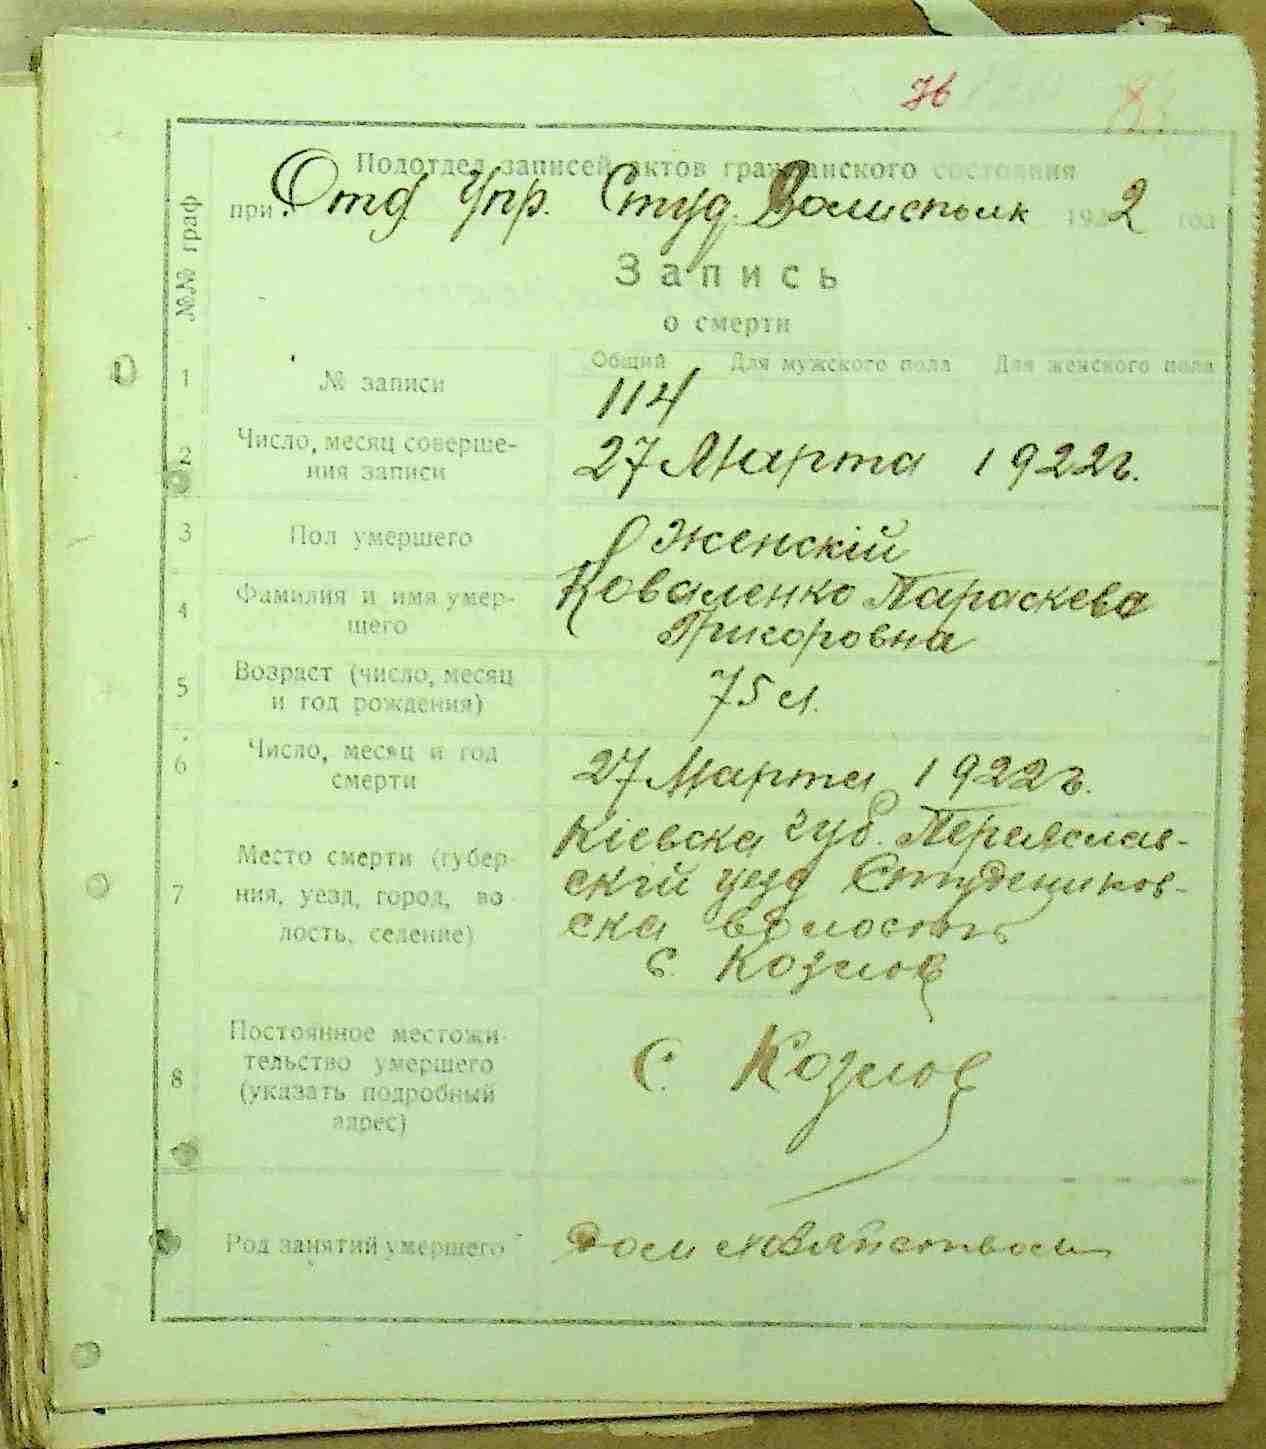 76
Подотдел записей актов гражданского состояния
при Отд. Упр. Студ. Волисполк 1922 год
№№ граф
Запись
о смерти
Общий Для мужского пола Для женского пола
1 № записи 114
2 Число, месяц соверше-
ния записи 27 Марта 1922 г.
3 Пол умершего Женскій
4 Фамилия и имя умер-
шего Коваленко Параскева
Григоровна
5 Возраст (число, месяц
и год рождения) 75 л.
6 Число, месяц и год
смерти 27 Марта 1922 г.
7 Место смерти (губер-
ния, уезд, город, во-
лость, селение)
Кіевска губ. Переяслав-
скій уезд Студеников-
ска волость
с. Козлов
8 Постоянное местожи-
тельство умершего
(указать подробный
адрес)
С. Козлов
Род занятий умершего Дом